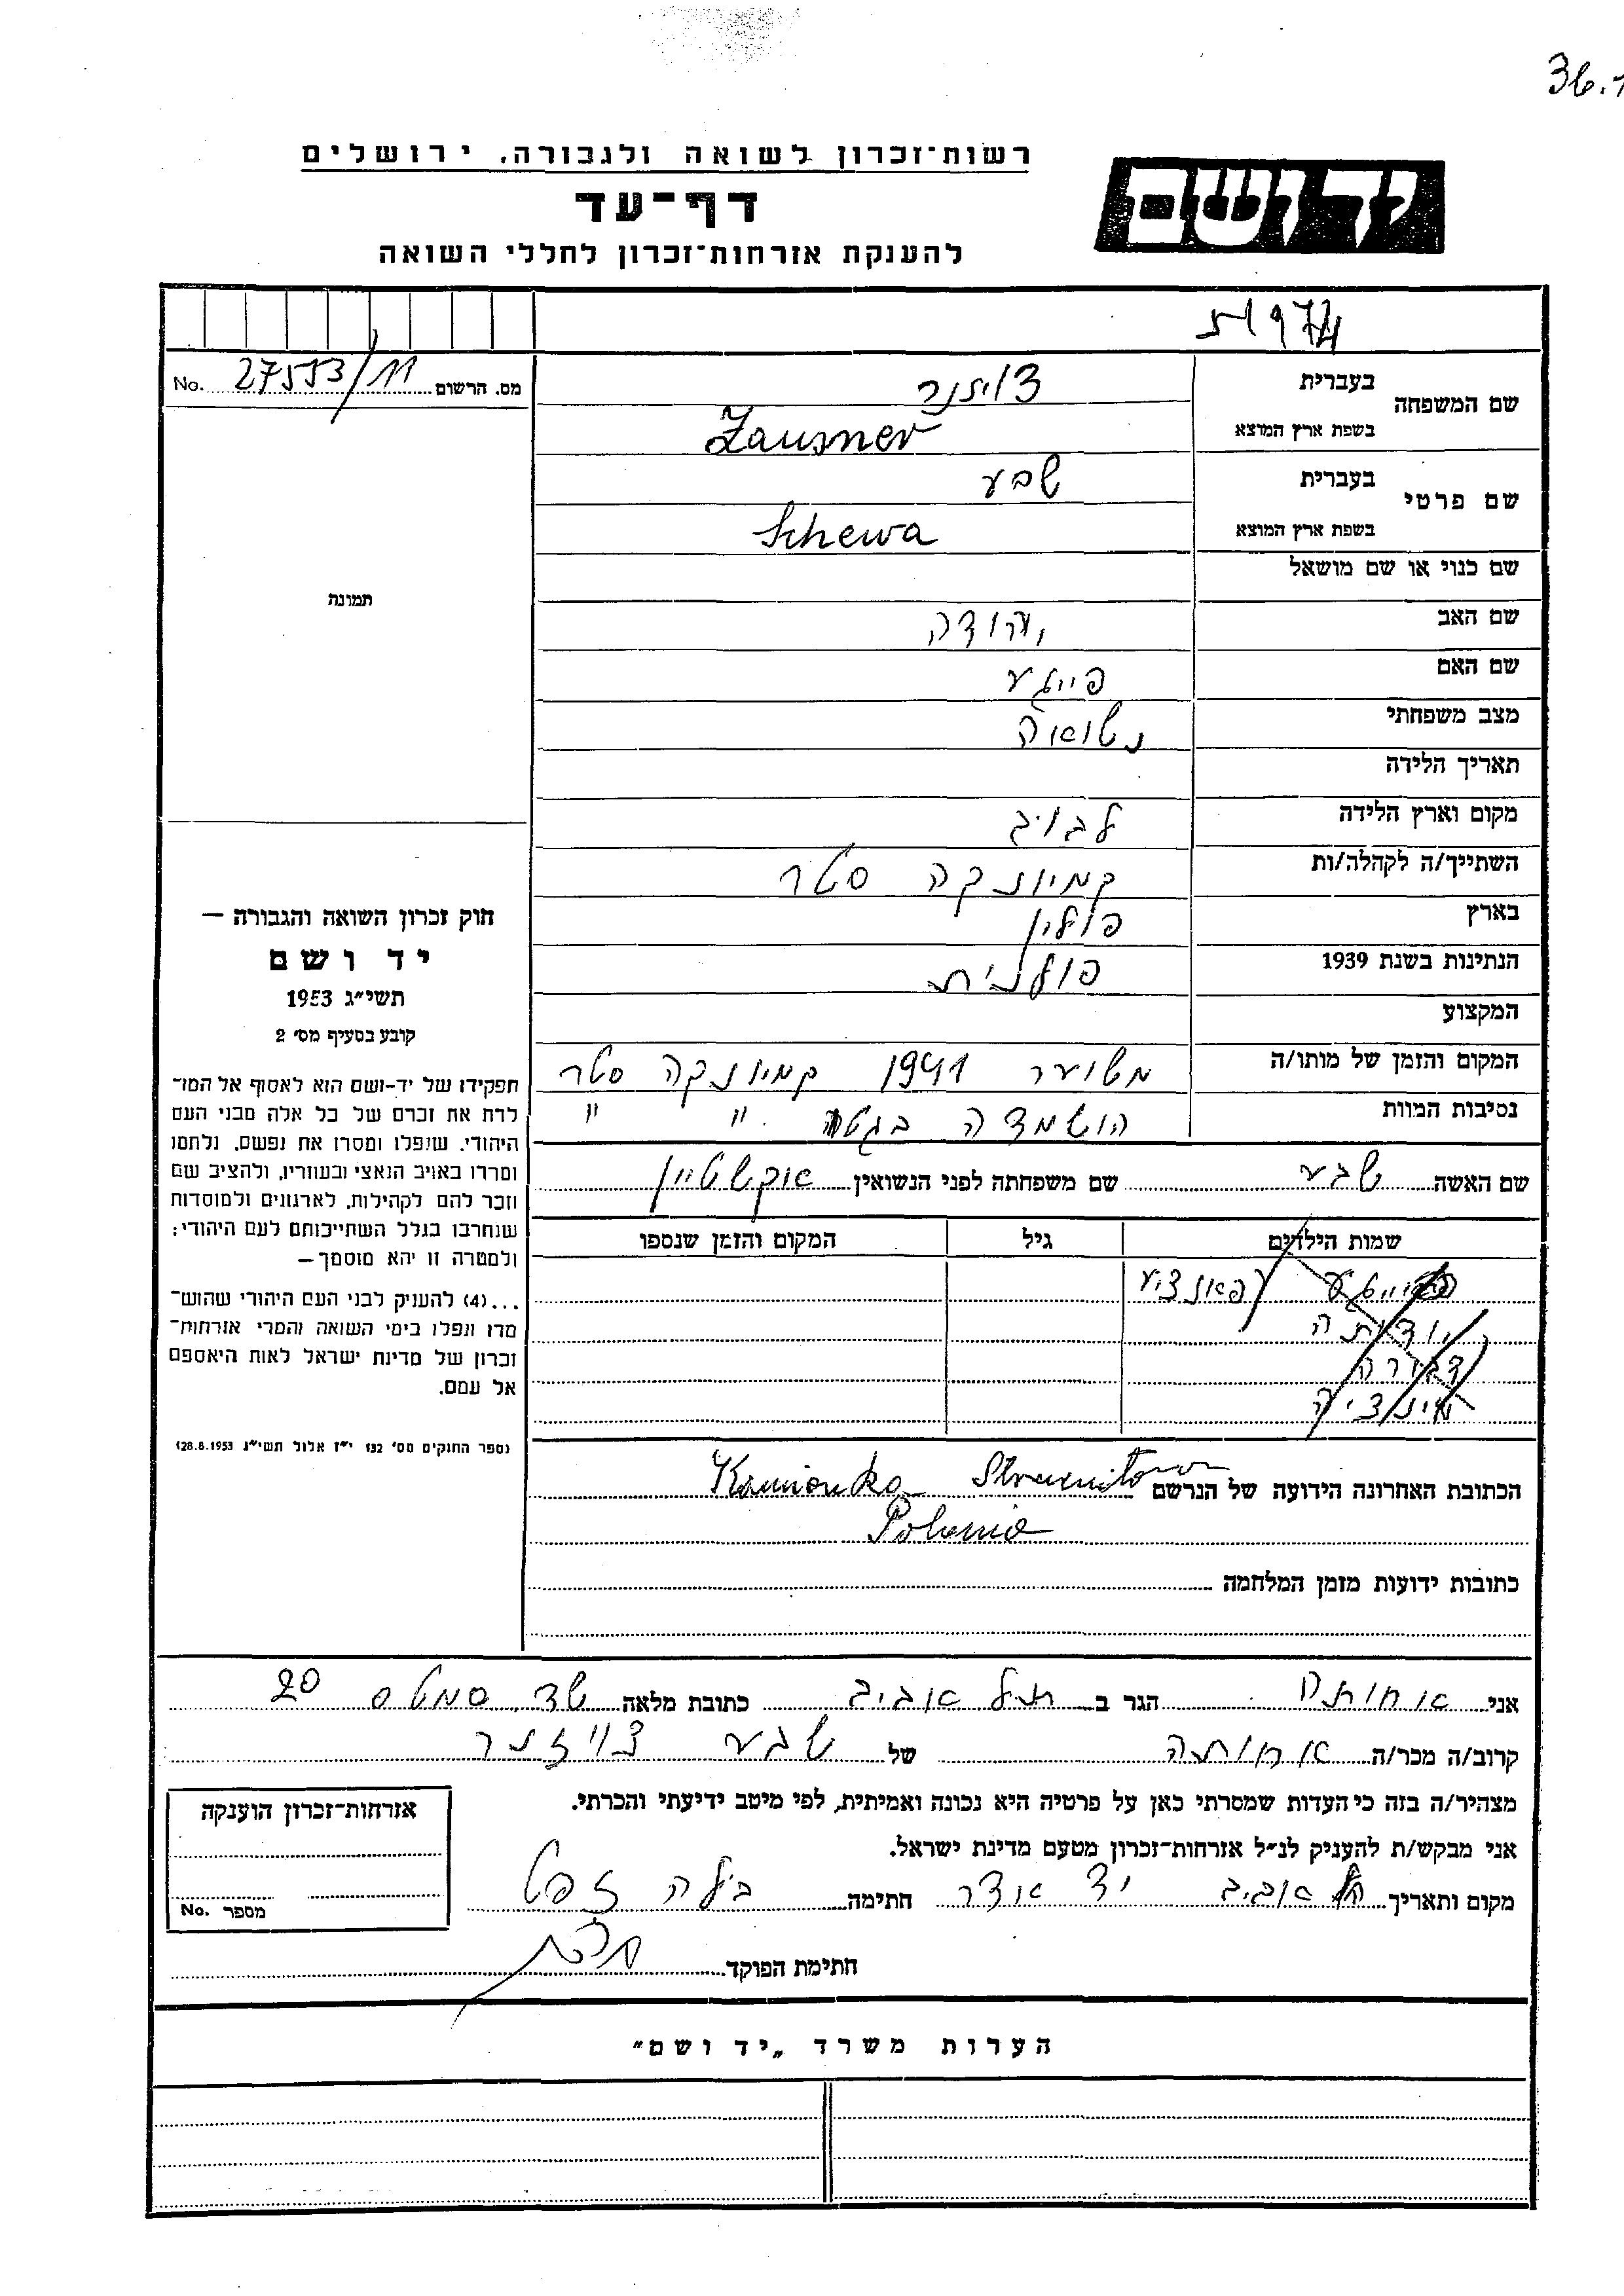 36.
רשות־זכרון לשואה ולגבורה, ירושלים
יד ושם
דף־עד
להענקת אזרחות־זכרון לחללי השואה
מס. הרשום 27553/11 No.
שם המשפחה בעברית צויזנר
בשפת ארץ המוצא Zausner
שם פרטי בעברית שבע
בשפת ארץ המוצא Schewa
שם כנוי או שם מושאל
שם האב יהודה
שם האם פייגע
מצב משפחתי נשואה
תאריך הלידה
מקום וארץ הלידה לבוב
השתייך/ה לקהלה/ות קמיונקה סטר
בארץ פולין
הנתינות בשנת 1939 פולנית
המקצוע
המקום והזמן של מותו/ה משוער 1941 קמיונקה סטר
נסיבות המוות הושמדה בגטו " "
שם האשה שבע שם משפחתה לפני הנשואין אקשטיין
שמות הילדים גיל המקום והזמן שנספו
יודיתה
דבורה
הכתובת האחרונה הידועה של הנרשם Kamionka
Polonia
כתובות ידועות מזמן המלחמה
תמונה
חוק זכרון השואה והגבורה —
יד ושם
תשי״ג 1953
קובע בסעיף מס׳ 2
תפקידו של יד-ושם הוא לאסוף אל המו־
לדת את זכרם של כל אלה מבני העם
היהודי, שנפלו ומסרו את נפשם, נלחמו
ומרדו באויב הנאצי ובעוזריו, ולהציב שם
וזכר להם לקהילות, לארגונים ולמוסדות
שנחרבו בגלל השתייכותם לעם היהודי;
ולמטרה זו יהא מוסמך —
...(4) להעניק לבני העם היהודי שהוש־
מדו ונפלו בימי השואה והמרי אזרחות־
זכרון של מדינת ישראל לאות היאספם
אל עמם.
(ספר החוקים מס׳ 132 י״ז אלול תשי״ג 28.8.1953)
אני אחותה הגר ב תל אביב כתובת מלאה שד סמטס 20
קרוב/ה מכר/ה אחותה של שבע צויזנר
מצהיר/ה בזה כי העדות שמסרתי כאן על פרטיה היא נכונה ואמיתית, לפי מיטב ידיעתי והכרתי.
אני מבקש/ת להעניק לנ״ל אזרחות־זכרון מטעם מדינת ישראל.
מקום ותאריך תל אביב יד אדר חתימה בילה זפט
חתימת הפוקד
אזרחות־זכרון הוענקה
מספר No.
הערות משרד „יד ושם״